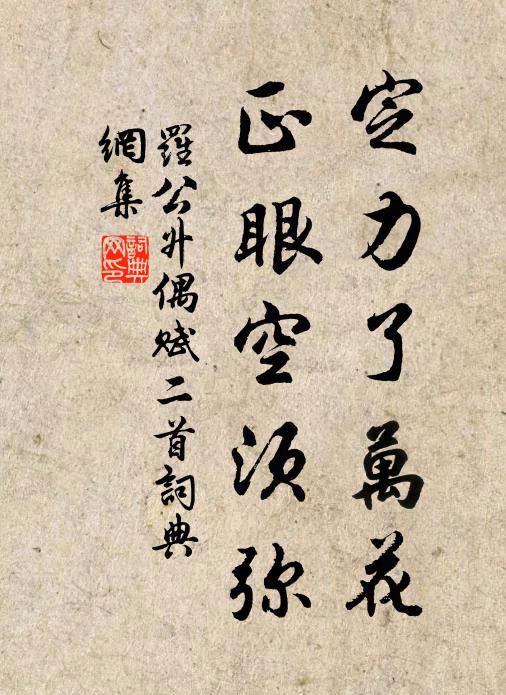 定力了萬花
正眼空須弥
羅公升偶賦二首詞典
網集
詞典
网印